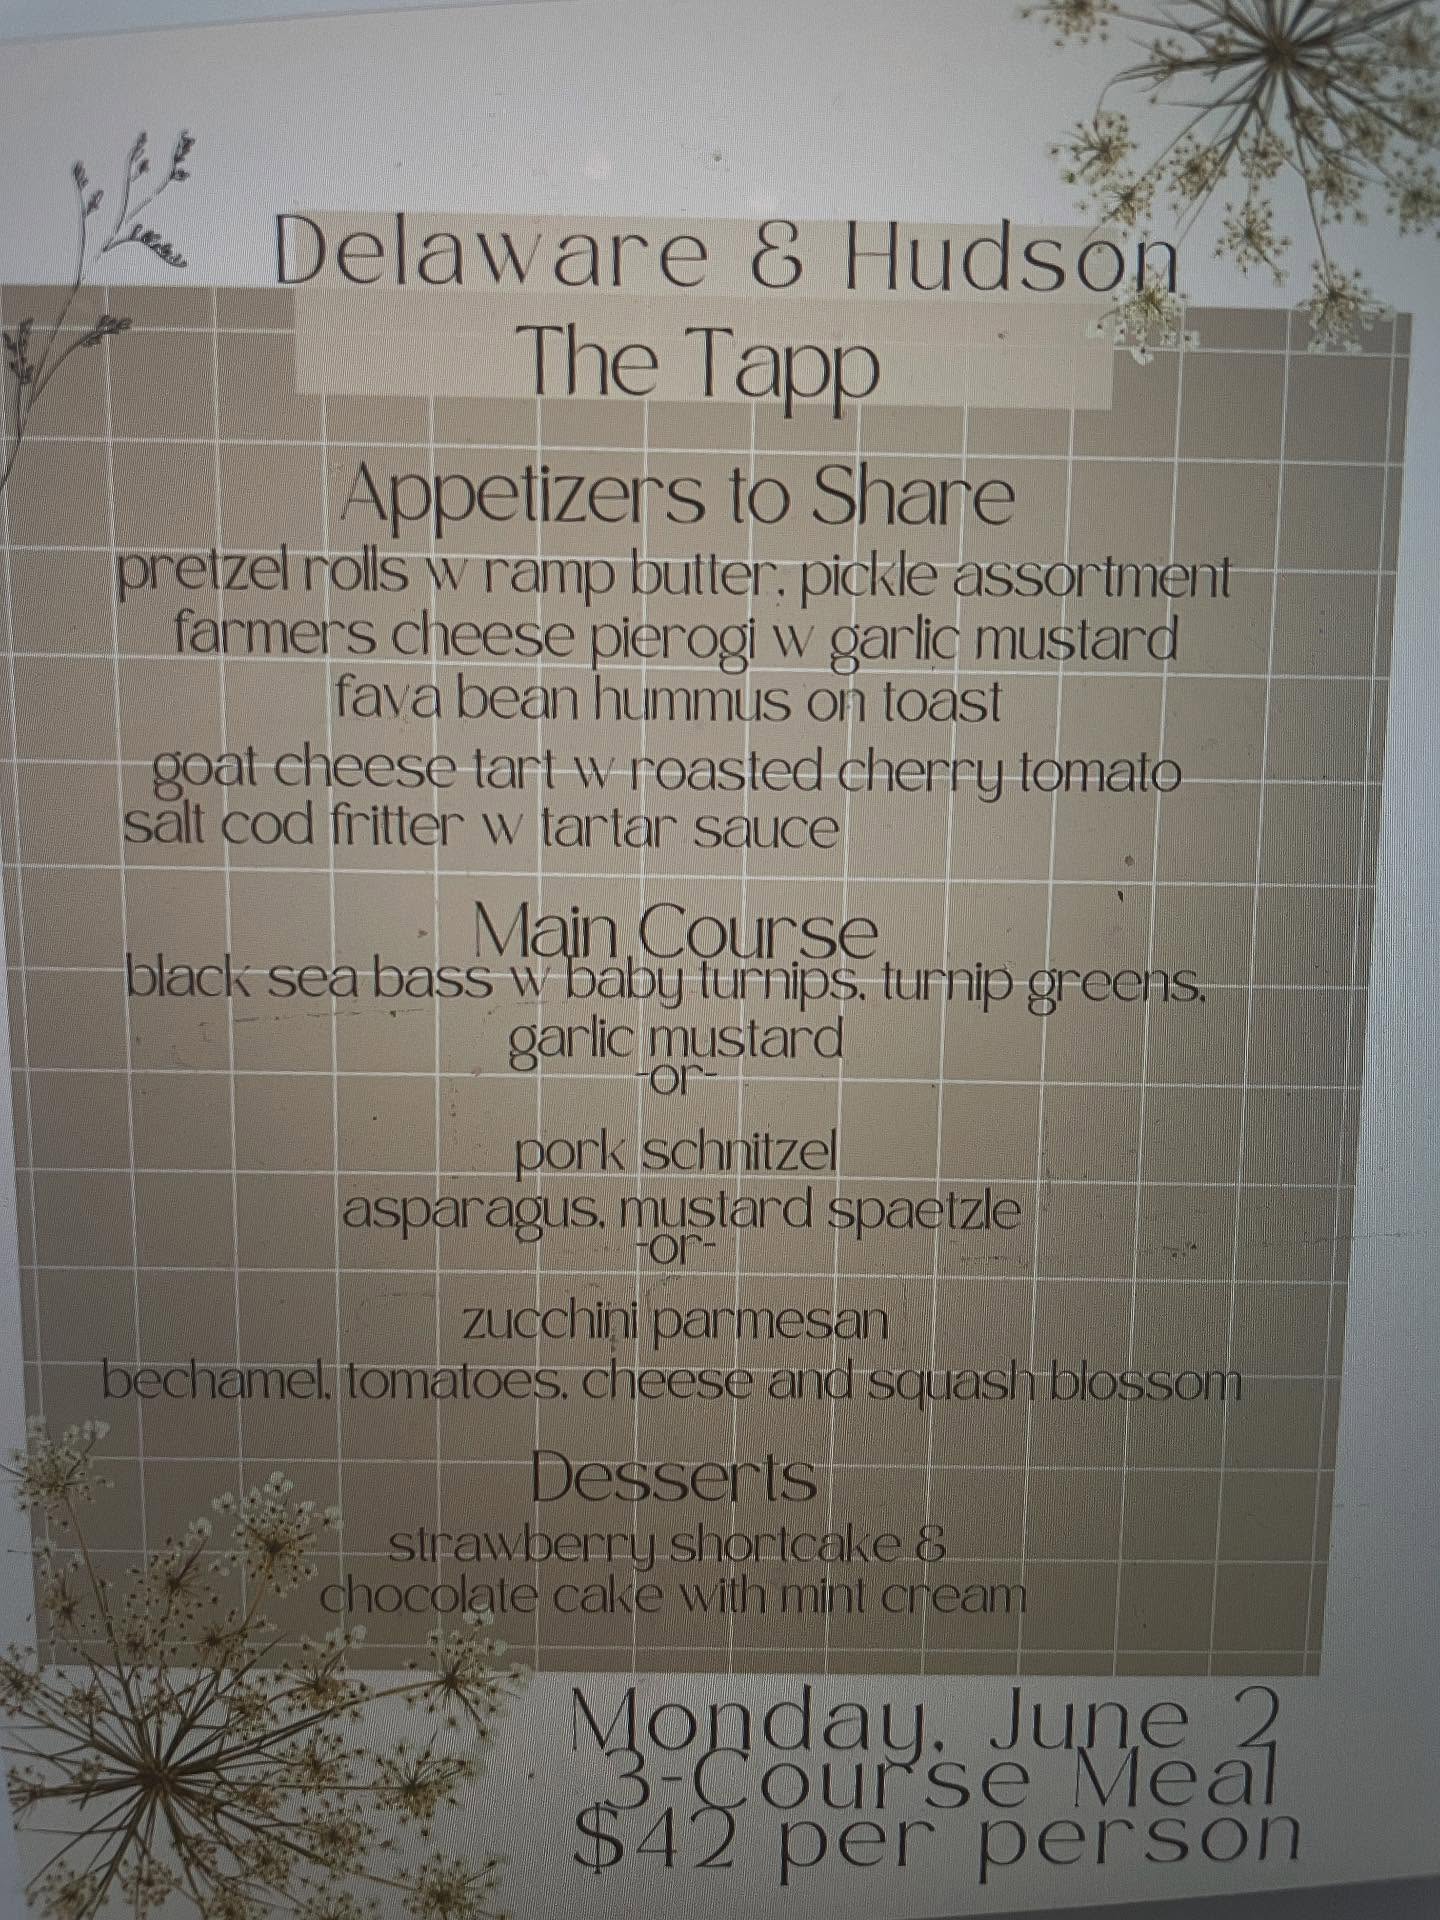 Delaware & Hudson
The Tapp
Appetizers to Share
pretzel rolls w ramp butter, pickle assortment
farmers cheese pierogi w garlic mustard
fava bean hummus on toast
goat cheese tart w roasted cherry tomato
salt cod fritter w tartar sauce
Main Course
black sea bass w baby turnips, turnip greens,
garlic mustard
-or-
pork schnitzel
asparagus, mustard spaetzle
-or-
zucchini parmesan
bechamel, tomatoes, cheese and squash blossom
Desserts
strawberry shortcake &
chocolate cake with mint cream
Monday, June 2
3-Course Meal
$42 per person